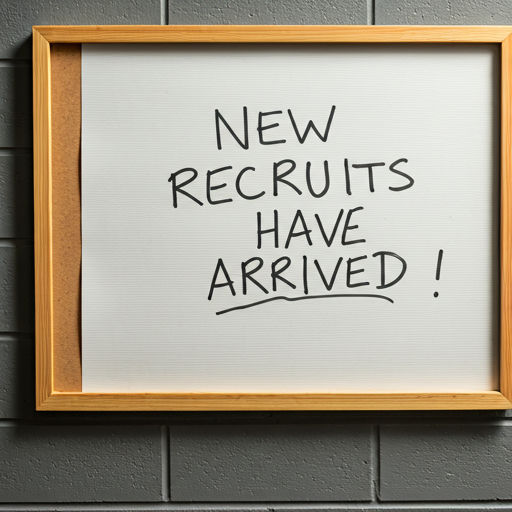 NEW
RECRUITS
HAVE
ARRIVED !